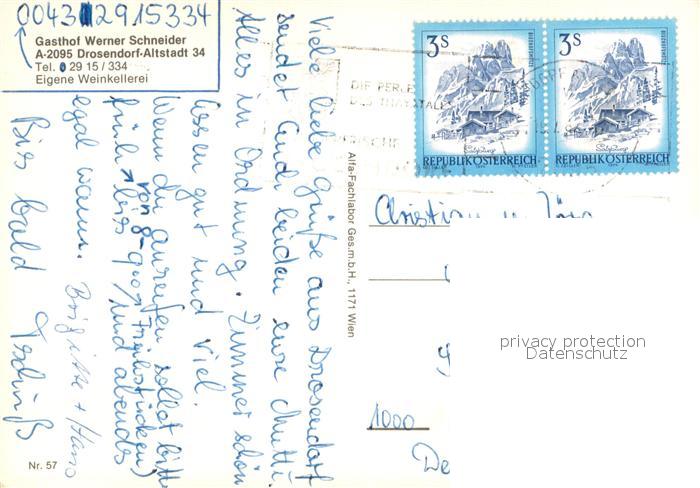 0043 2915334
Gasthof Werner Schneider
A-2095 Drosendorf-Altstadt 34
Tel. 0 29 15 / 334
Eigene Weinkellerei
Viele liebe Grüße aus Drosendorf
sendet Euch beiden eure Mutti.
Alles in Ordnung. Zimmer schön
Essen gut und viel.
Wenn du anrufen sollst bitte
früh von 9 (Frühstücken)
und abends
egal wann.
Bis bald Tschüß
Brigitte + Hans
Nr. 57
Alfa-Fachlabor Ges.m.b.H., 1171 Wien
DIE PERLE
DES THAYATALES
3S
BISCHOFSMÜTZE
Salzburg
REPUBLIK ÖSTERREICH
3S
BISCHOFSMÜTZE
Salzburg
REPUBLIK ÖSTERREICH
Christian u.
1000
privacy protection
Datenschutz